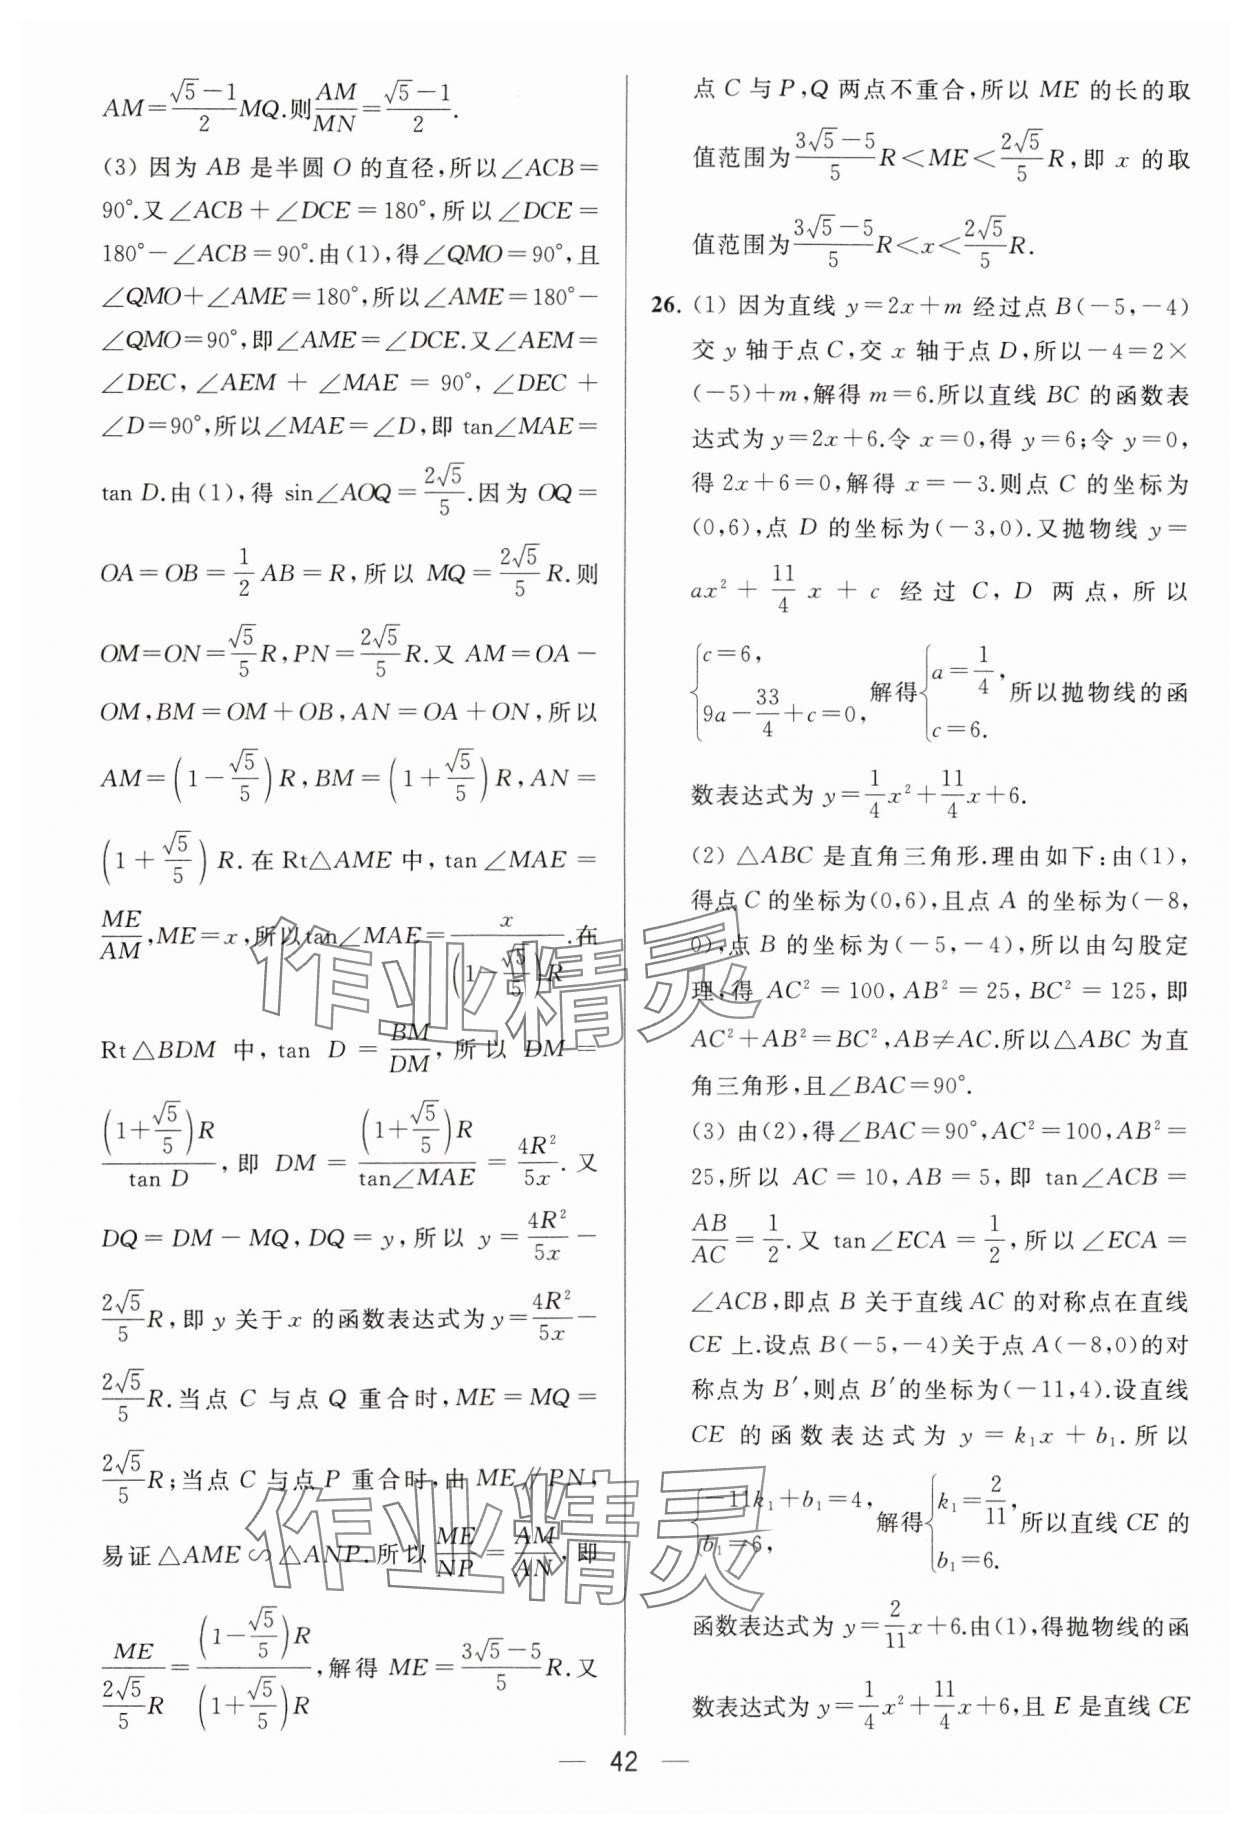 AM=\frac{\sqrt{5}-1}{2}MQ.则\frac{AM}{MN}=\frac{\sqrt{5}-1}{2}.
(3) 因为 AB 是半圆 O 的直径,所以∠ACB=
90°.又∠ACB+∠DCE=180°,所以∠DCE=
180°-∠ACB=90°.由(1),得∠QMO=90°,且
∠QMO+∠AME=180°,所以∠AME=180°-
∠QMO=90°,即∠AME=∠DCE.又∠AEM=
∠DEC,∠AEM+∠MAE=90°,∠DEC+
∠D=90°,所以∠MAE=∠D,即 tan∠MAE=
tan D.由(1),得 sin∠AOQ=\frac{2\sqrt{5}}{5}.因为 OQ=
OA=OB=\frac{1}{2}AB=R,所以 MQ=\frac{2\sqrt{5}}{5}R.则
OM=ON=\frac{\sqrt{5}}{5}R,PN=\frac{2\sqrt{5}}{5}R.又 AM=OA-
OM,BM=OM+OB,AN=OA+ON,所以
AM=(1-\frac{\sqrt{5}}{5})R,BM=(1+\frac{\sqrt{5}}{5})R,AN=
(1+\frac{\sqrt{5}}{5})R.在 Rt△AME 中,tan∠MAE=
\frac{ME}{AM},ME=x,所以tan∠MAE=\frac{x}{(1-\frac{\sqrt{5}}{5})R}.在
Rt△BDM 中,tan D=\frac{BM}{DM},所以 DM=
\frac{(1+\frac{\sqrt{5}}{5})R}{tan D},即 DM=\frac{(1+\frac{\sqrt{5}}{5})R}{tan∠MAE}=\frac{4R^2}{5x}.又
DQ=DM-MQ,DQ=y,所以 y=\frac{4R^2}{5x}-
\frac{2\sqrt{5}}{5}R,即 y 关于 x 的函数表达式为 y=\frac{4R^2}{5x}-
\frac{2\sqrt{5}}{5}R.当点 C 与点 Q 重合时,ME=MQ=
\frac{2\sqrt{5}}{5}R;当点 C 与点 P 重合时,由 ME∥PN,
易证△AME∽△ANP.所以\frac{ME}{NP}=\frac{AM}{AN},即
\frac{ME}{\frac{2\sqrt{5}}{5}R}=\frac{(1-\frac{\sqrt{5}}{5})R}{(1+\frac{\sqrt{5}}{5})R},解得 ME=\frac{3\sqrt{5}-5}{5}R.又
点 C 与 P,Q 两点不重合,所以 ME 的长的取
值范围为\frac{3\sqrt{5}-5}{5}R<ME<\frac{2\sqrt{5}}{5}R,即 x 的取
值范围为\frac{3\sqrt{5}-5}{5}R<x<\frac{2\sqrt{5}}{5}R.
26. (1) 因为直线 y=2x+m 经过点 B(-5,-4)
交 y 轴于点 C,交 x 轴于点 D,所以-4=2×
(-5)+m,解得 m=6.所以直线 BC 的函数表
达式为 y=2x+6.令 x=0,得 y=6;令 y=0,
得 2x+6=0,解得 x=-3.则点 C 的坐标为
(0,6),点 D 的坐标为(-3,0).又抛物线 y=
ax^2+\frac{11}{4}x+c 经过 C,D 两点,所以
{c=6, 9a-\frac{33}{4}+c=0, 解得{a=\frac{1}{4}, c=6. 所以抛物线的函
数表达式为 y=\frac{1}{4}x^2+\frac{11}{4}x+6.
(2) △ABC 是直角三角形.理由如下:由(1),
得点 C 的坐标为(0,6),且点 A 的坐标为(-8,
0),点 B 的坐标为(-5,-4),所以由勾股定
理,得 AC^2=100,AB^2=25,BC^2=125,即
AC^2+AB^2=BC^2,AB≠AC.所以△ABC 为直
角三角形,且∠BAC=90°.
(3) 由(2),得∠BAC=90°,AC^2=100,AB^2=
25,所以 AC=10,AB=5,即 tan∠ACB=
\frac{AB}{AC}=\frac{1}{2}.又 tan∠ECA=\frac{1}{2},所以∠ECA=
∠ACB,即点 B 关于直线 AC 的对称点在直线
CE 上.设点 B(-5,-4)关于点 A(-8,0)的对
称点为 B′,则点 B′的坐标为(-11,4).设直线
CE 的函数表达式为 y=k_1x+b_1.所以
{-11k_1+b_1=4, b_1=6, 解得{k_1=\frac{2}{11}, b_1=6. 所以直线 CE 的
函数表达式为 y=\frac{2}{11}x+6.由(1),得抛物线的函
数表达式为 y=\frac{1}{4}x^2+\frac{11}{4}x+6,且 E 是直线 CE
— 42 —
作业精灵
作业精灵